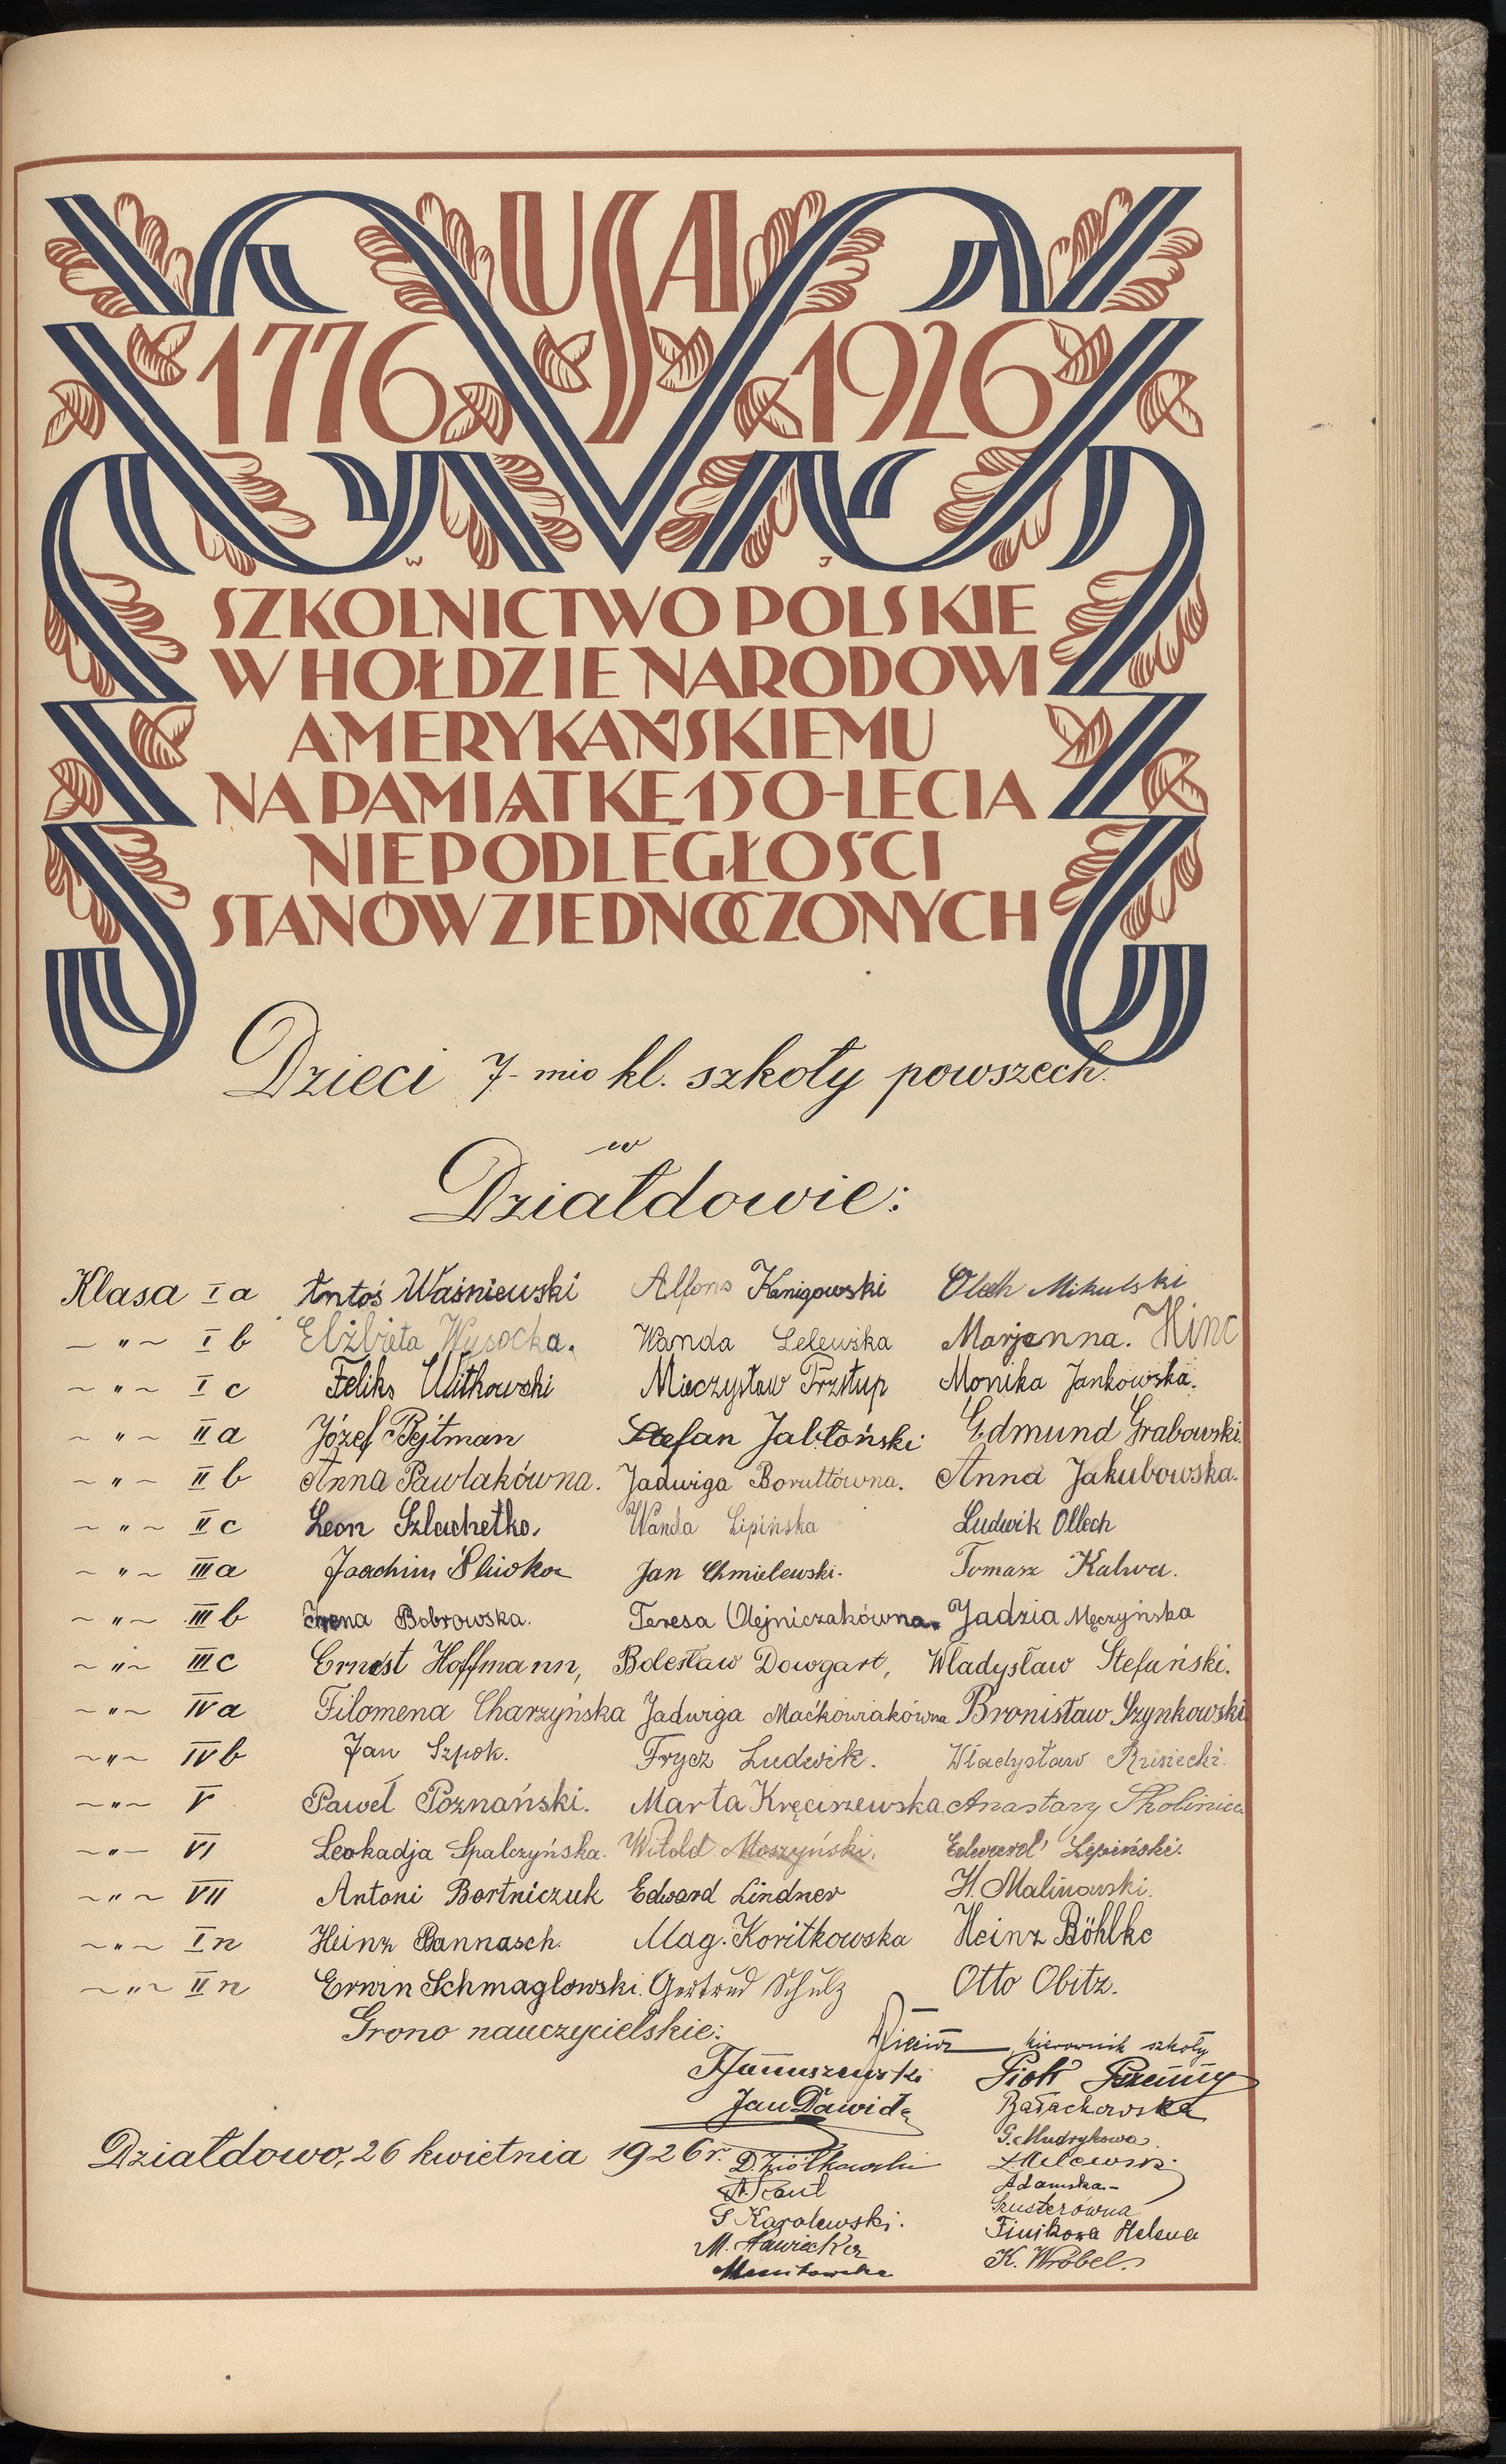 USA
1776 1926
W J
SZKOLNICTWO POLSKIE
W HOŁDZIE NARODOWI
AMERYKAŃSKIEMU
NA PAMIĄTKĘ 150-LECIA
NIEPODLEGŁOŚCI
STANÓW ZJEDNOCZONYCH
Dzieci 7-mio kl. szkoły powszech.
w
Działdowie:
Klasa I a Antoś Waśniewski Alfons Kanigowski Olech Mikulski
~ " ~ I b Elżbieta Wysocka. Wanda Lelewska Marjanna. Hinc
~ " ~ I c Feliks Witkowski Mieczysław Monika Jankowska.
~ " ~ II a Józef Bejtman Stefan Jabłoński Edmund Grabowski.
~ " ~ II b Anna Pawlakówna. Jadwiga Boruttówna. Anna Jakubowska.
~ " ~ II c Leon Szlachetko. Wanda Lipińska Ludwik Ollech
~ " ~ III a Joachim Śliwka Jan Chmielewski. Tomasz Kalwa.
~ " ~ III b Irena Bobrowska. Teresa Olejniczakówna. Jadzia Męczyńska
~ " ~ III c Ernest Hoffmann, Bolesław Dowgart, Władysław Stefański.
~ " ~ IV a Filomena Charzyńska Jadwiga Maćkowiakówna Bronisław Szynkowski.
~ " ~ IV b Jan Szpok. Frycz Ludwik. Władysław
~ " ~ V Paweł Poznański. Marta Kręciszewska. Anastazy
~ " ~ VI Leokadja Spalczyńska. Witold Moszyński. Edward Lipiński.
~ " ~ VII Antoni Bortniczuk Edward Lindner H. Malinowski.
~ " ~ I n Heinz Bannasch. Mag. Koritkowska Heinz Böhlke
~ " ~ II n Erwin Schmaglowski. Gertrud Schulz Otto Obitz.
Grono nauczycielskie:
kierownik szkoły
Januszewski Piotr
Jan Dawida Bałachowska
G. Mudrykowa
Działdowo, 26 kwietnia 1926 r. D. Ziółkowski
Adamska
Szusterówna
S Karolewski. Finikowa Helena
M. Sawicka K. Wróbel.